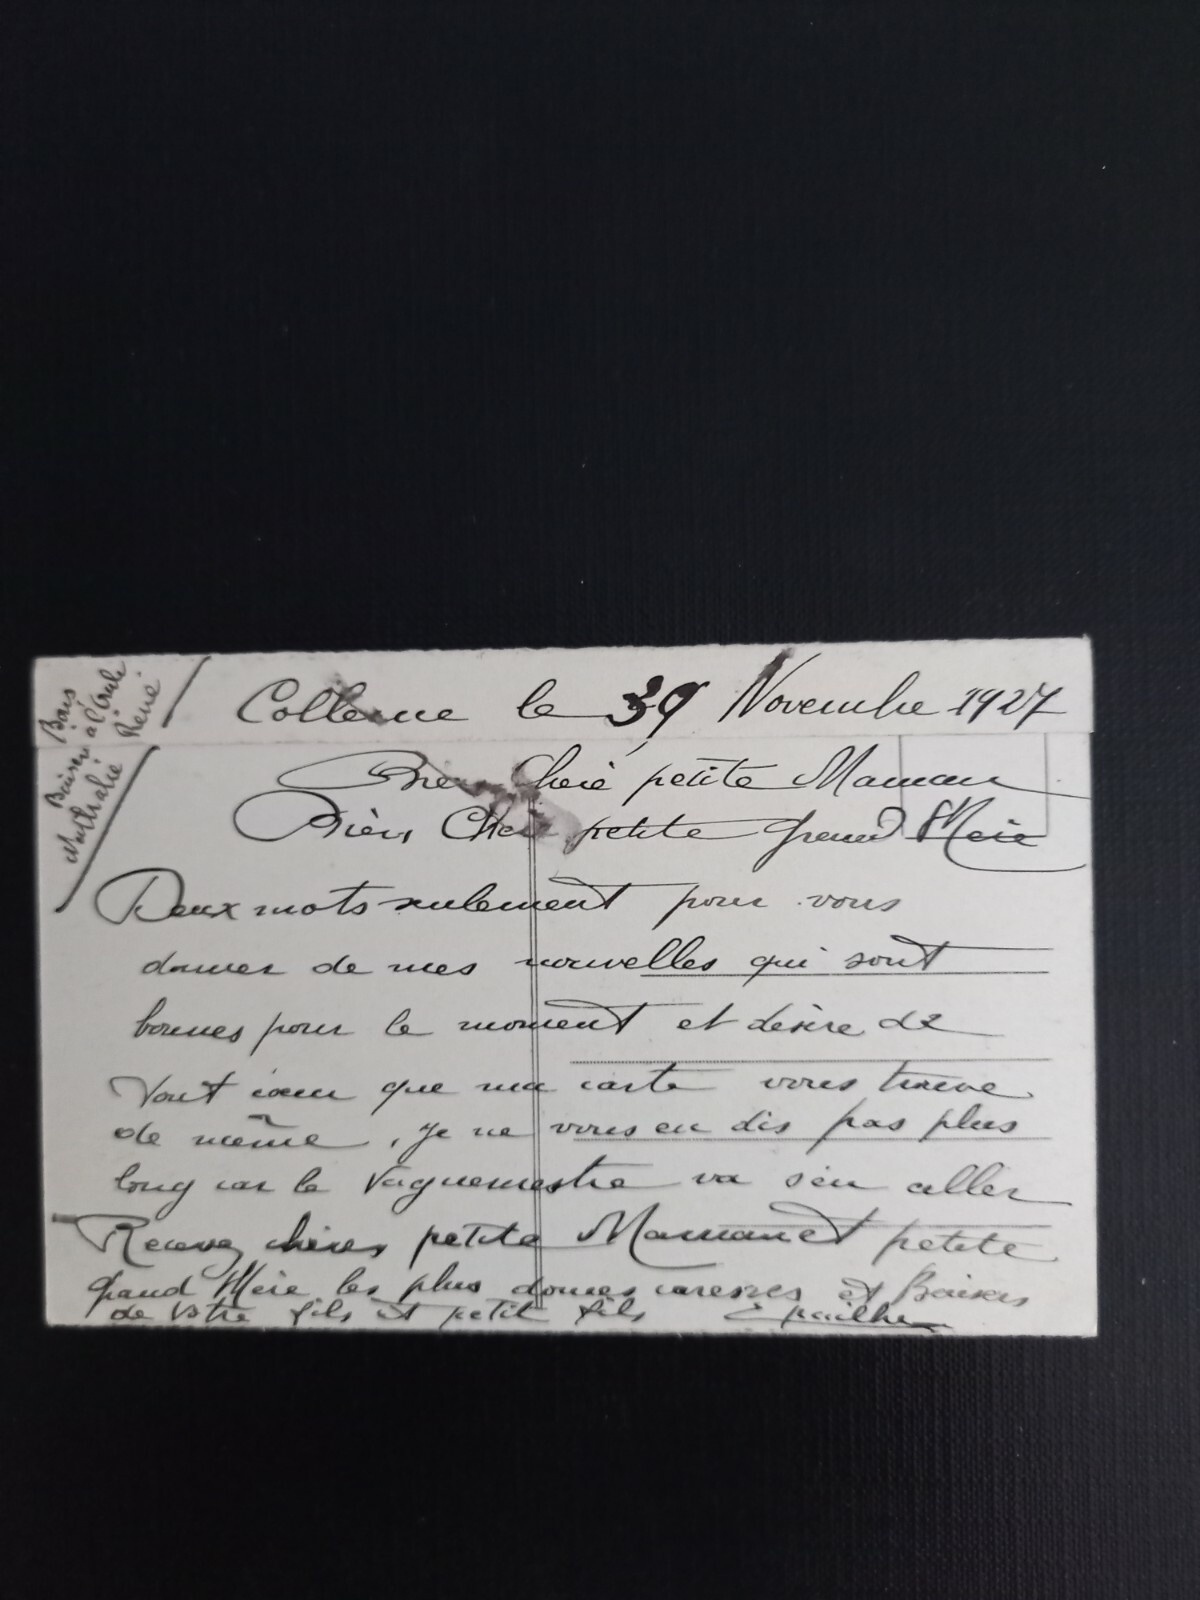 le 39 Novembre 1927
Chère petite Maman
petite Grand Mère
Deux mots seulement pour vous
donner de mes nouvelles qui sont
bonnes pour le moment et désire de
tout cœur que ma carte vous trouve
de même, je ne vous en dis pas plus
long car le Vaguemestre va s'en aller
Recevez chères petite Maman et petite
Grand Mère les plus douces caresses et Baisers
de Votre fils et petit fils
Baisers à
René